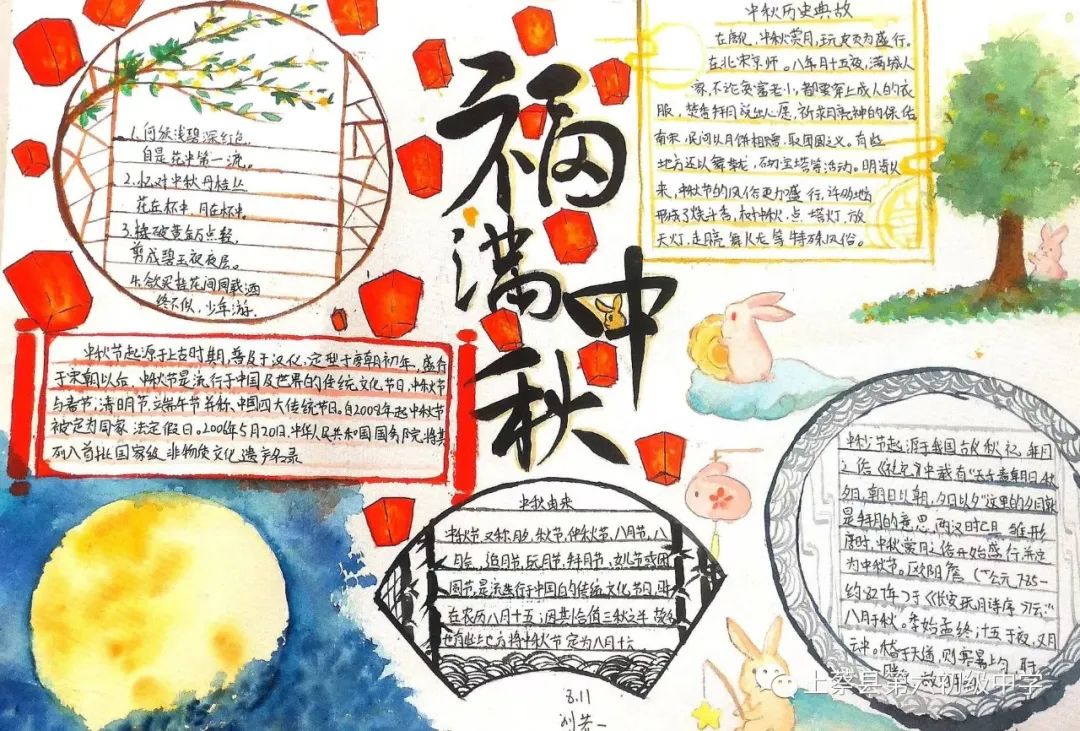 福满中秋
1.何须浅碧深红色
自是花中第一流。
2.忆对中秋丹桂丛
花在杯中,月在杯中。
3.揉破黄金万点轻,
剪成碧玉叶层层。
4.欲买桂花同载酒
终不似,少年游。
中秋历史典故
在唐代,中秋赏月,玩月颇为盛行。
在北宋京师。八月十五夜,满城人
家,不论贫富老小,都要穿上成人的衣
服,焚香拜月说出心愿,祈求月亮神的保佑
南宋,民间以月饼相赠,取团圆义。有些
地方还以舞草龙,砌宝塔等活动。明清以
来,中秋节的风俗更加盛行,许多地方
形成了烧斗香,树中秋,点塔灯,放
天灯,走月亮,舞火龙等特殊风俗。
中秋节起源于上古时期,普及于汉代,定型于唐朝初年,盛行
于宋朝以后,中秋节是流行于中国及世界的传统文化节日,中秋节
与春节,清明节,端午节并称、中国四大传统节日。自2008年起中秋节
被定为国家法定假日。2006年5月20日,中华人民共和国国务院,将其
列入首批国家级非物质文化遗产名录
中秋由来
中秋节又称月夕,秋节,仲秋节,八月节,八
月会,追月节,玩月节,拜月节、女儿节或团
圆节,是流行于中国的传统文化节日,
在农历八月十五;因其恰值三秋之半,故名
也有些地方将中秋节定为八月十六
中秋节起源于我国古代秋祀,拜月
之俗《礼记》中载有“天子春朝日,秋
夕月,朝日以朝,夕月以夕”这里的夕月就
是拜月的意思,两汉时已具雏形
唐时,中秋赏月之俗开始盛行,并定
为中秋节。欧阳詹(公元785-
约827年)于《长安玩月诗序》云:“
八月于秋。季始孟终,十五于夜,又月
云中。稽于天道,则寒暑均,取于
8.11
上蔡县第六初级中学